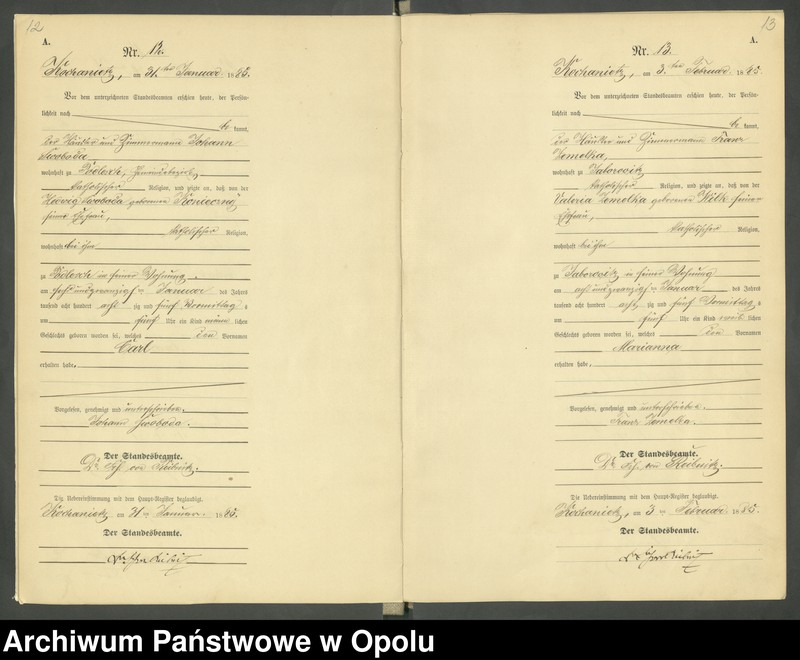 12
A.
Nr. 12.
Kochanietz, am 31ten Januar 1885.
Vor dem unterzeichneten Standesbeamten erschien heute, der Persön-
lichkeit nach
be kannt,
der Häusler und Zimmermann Johann
Swoboda
wohnhaft zu
katholischer Religion, und zeigte an, daß von der
Hedwig Swoboda geborenen Konieczny
seiner Ehefrau,
katholischer Religion,
wohnhaft bei ihm
zu in seiner Wohnung
am sechsundzwanzigsten Januar des Jahres
tausend acht hundert acht zig und fünf Vormittag s
um fünf Uhr ein Kind männ lichen
Geschlechts geboren worden sei, welches den Vornamen
Carl
erhalten habe.
Vorgelesen, genehmigt und unterschrieben.
Johann Swoboda.
Der Standesbeamte.
Dr. von
Die Uebereinstimmung mit dem Haupt-Register beglaubigt.
Kochanietz am 31ten Januar 1885.
Der Standesbeamte.
13
A.
Nr. 13.
Kochanietz, am 3ten Februar 1885.
Vor dem unterzeichneten Standesbeamten erschien heute, der Persön-
lichkeit nach
be kannt,
der Häusler und Zimmermann Franz
Zemelka,
wohnhaft zu
katholischer Religion, und zeigte an, daß von der
Valeria Zemelka geborenen Wilk seiner
Ehefrau,
katholischer Religion,
wohnhaft bei ihm
zu in seiner Wohnung
am achtundzwanzigsten Januar des Jahres
tausend acht hundert acht zig und fünf Vormittag s
um fünf Uhr ein Kind weib lichen
Geschlechts geboren worden sei, welches den Vornamen
Marianna
erhalten habe.
Vorgelesen, genehmigt und unterschrieben.
Franz Zemelka.
Der Standesbeamte.
Dr. von
Die Uebereinstimmung mit dem Haupt-Register beglaubigt.
Kochanietz, am 3ten Februar 1885.
Der Standesbeamte.
Archiwum Państwowe w Opolu